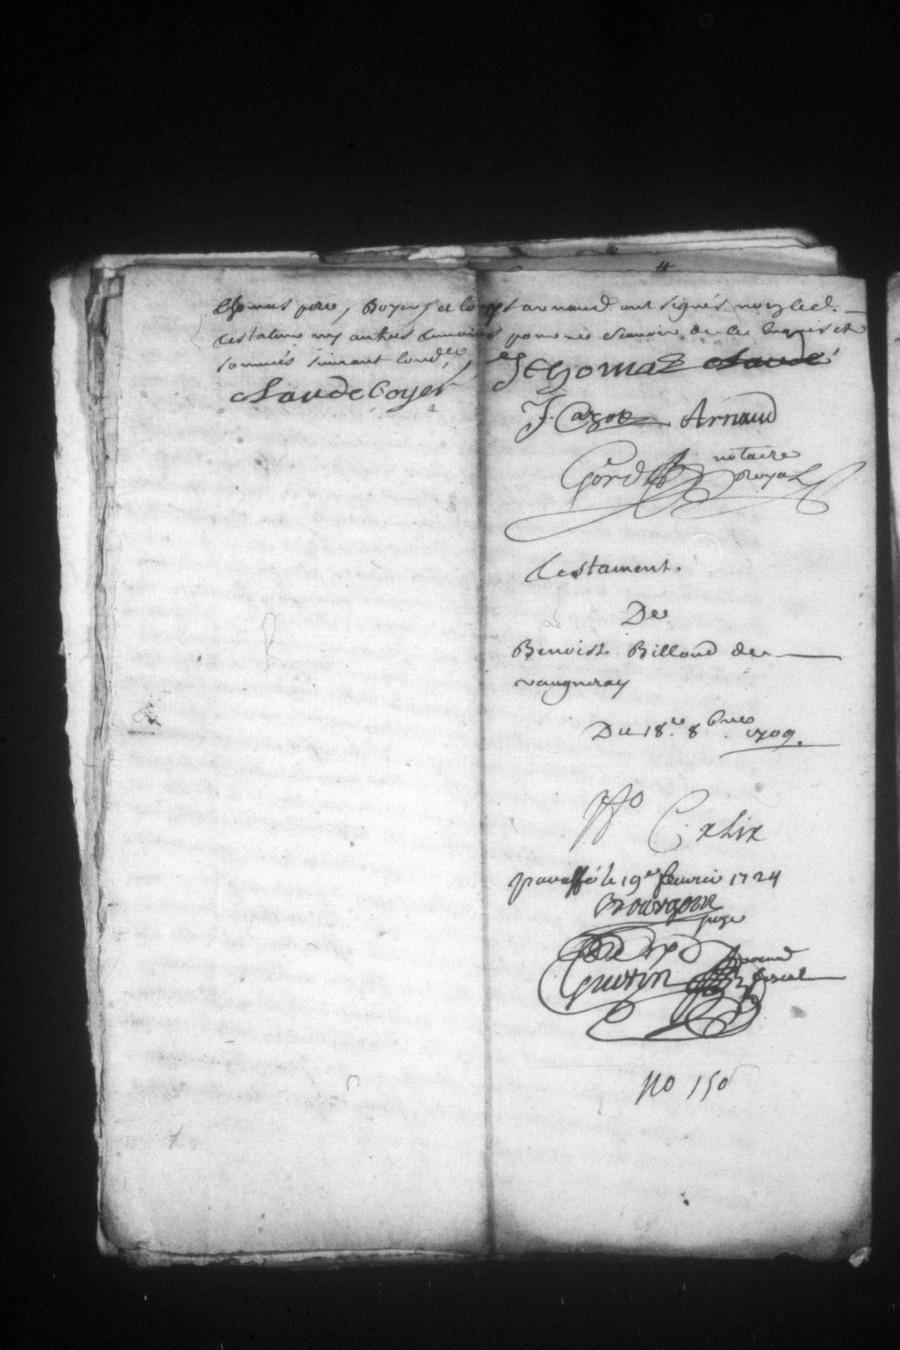 Thomas pere, Boyer, et Louys arnaud ont signés non led.
testateur ny autres temoins pour ne scavoir de ce enquis et
sommés suivant lord.ce
Claude boyer
J Thomas Claude
J. Cazot Arnaud
Gord notaire Royal
Testament.
De
Benoist Billoud de
vaugneray
Du 18.e 8bre 1709.
No C. xLix
paraffé le 19e feurier 1724
Bourgeon
juge
Guerin procureur fiscal
No 150